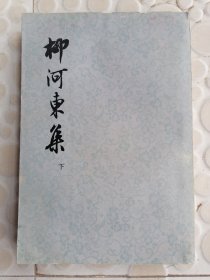 柳河東集
下